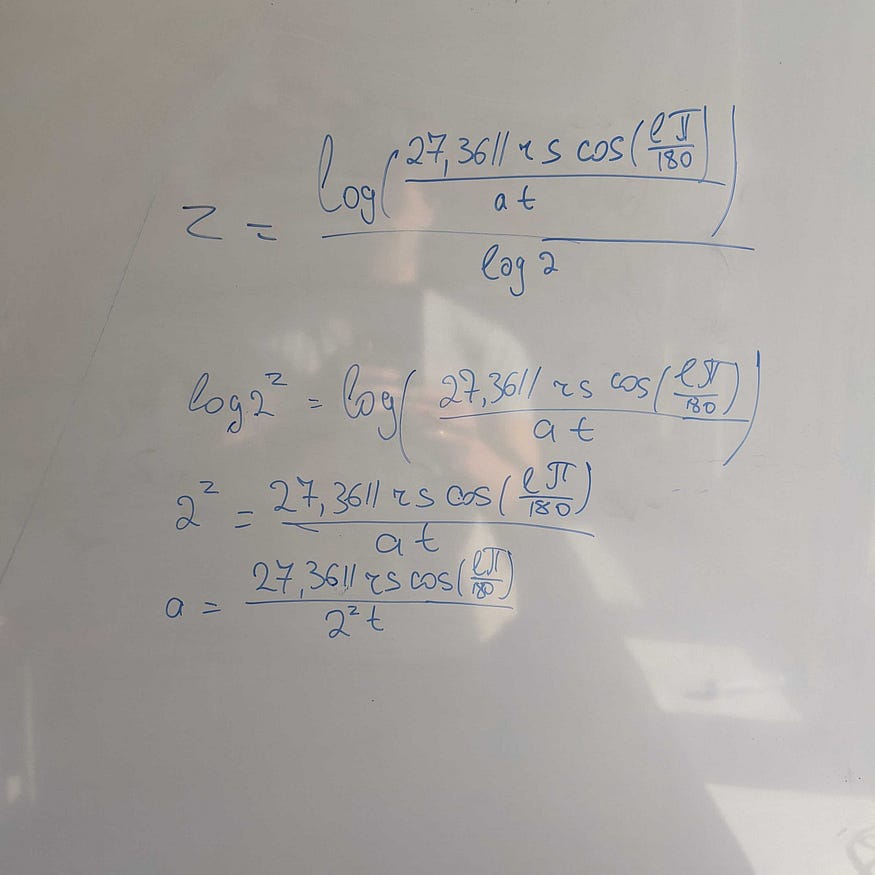 z = log(27,3611 r s cos(lπ/180) / a t) / log 2
log 2^z = log(27,3611 r s cos(lπ/180) / a t)
2^z = 27,3611 r s cos(lπ/180) / a t
a = 27,3611 r s cos(lπ/180) / 2^z t